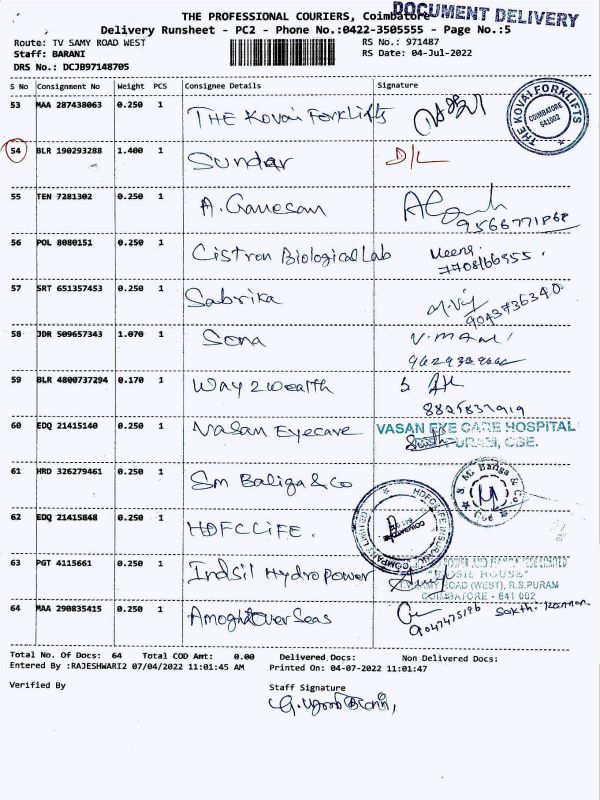 DOCUMENT DELIVERY
THE PROFESSIONAL COURIERS, Coimbatore
Delivery Runsheet - PC2 - Phone No.:0422-3505555 - Page No.:5
Route: TV SAMY ROAD WEST RS No.: 971487
Staff: BARANI RS Date: 04-Jul-2022
DRS No.: DCJB97148705
S No Consignment No Weight PCS Consignee Details Signature
53 MAA 287438063 0.250 1 THE Kovai Forklifts
THE KOVAI FORKLIFTS COIMBATORE 641002
54 BLR 190293288 1.400 1 Sundar D/L
55 TEN 7281302 0.250 1 A. Ganesan
9566771868
56 POL 8080151 0.250 1 Cistron Biological Lab Meena.
7708166955.
57 SRT 651357453 0.250 1 Sabrika
9043736340
58 JDR 509657343 1.070 1 Sona V. MANI
59 BLR 4800737294 0.170 1 Way 2 wealth
8825837919
60 EDQ 21415140 0.250 1 Vasan Eyecare VASAN EYE CARE HOSPITAL
PURAM, CBE.
61 HRD 326279461 0.250 1 Sm Baliga & Co
S. M. Baliga & Co
62 EDQ 21415848 0.250 1 HDFC LIFE.
HDFC LIFE INSURANCE COMPANY LIMITED COIMBATORE
63 PGT 4115661 0.250 1 Indsil Hydro Power
HOUSE"
ROAD (WEST), R.S.PURAM
COIMBATORE - 641 002
64 MAA 290835415 0.250 1 Amogha Over Seas
9047475196
Total No. Of Docs: 64 Total COD Amt: 0.00 Delivered Docs: Non Delivered Docs:
Entered By :RAJESHWARI2 07/04/2022 11:01:45 AM Printed On: 04-07-2022 11:01:47
Verified By Staff Signature